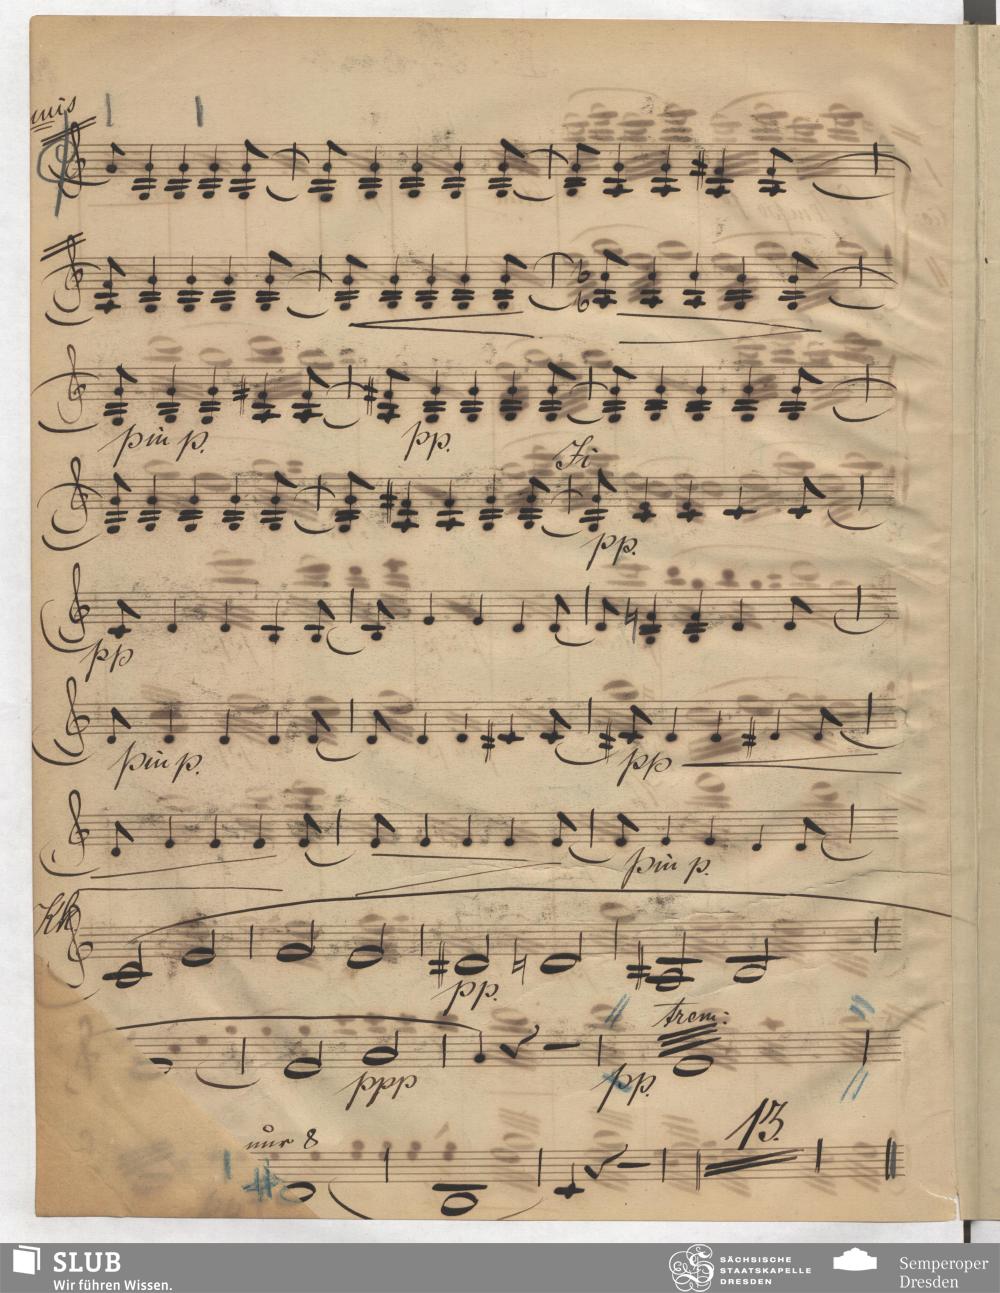 unis
più p.
pp.
pp.
pp
più p.
pp
più p.
pp.
trem:
ppp
pp.
nur 8
13.
SLUB
Wir führen Wissen.
SÄCHSISCHE
STAATSKAPELLE
DRESDEN
Semperoper
Dresden